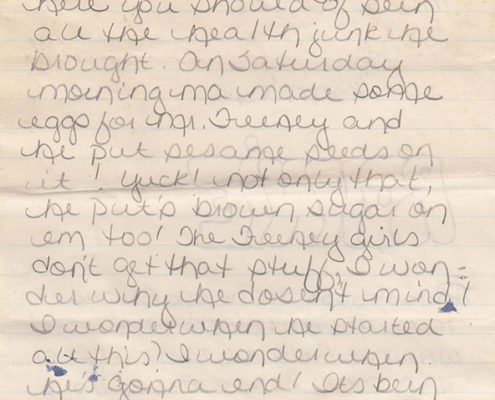 here you should of seen
all the health junk he
brought. On Saturday
morning ma made some
eggs for Mr. Feeney and
he put sesame seeds on
it! Yuck! not only that,
he put's brown sugar on
em too! The Feeney girls
don't get that stuff, I won-
der why he dosen't mind!
I wonder when he started
all this? I wonder when
he's gonna end! Its been